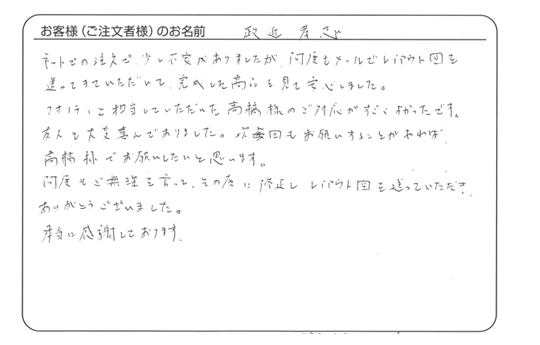 お客様(ご注文者様)のお名前 政近 孝志
ネットでの注文で、少し不安がありましたが、何度もメールでレイアウト図を
送ってきていただいて、完成した商品を見て安心しました。
クオリティと担当していただいた高橋様のご対応がすごくよかったです。
友人も大変喜んでおりました。次毎回もお願いすることがあれば、
高橋様でお願いしたいと思います。
何度もご無理を言って、その度に修正しレイアウト図を送っていただき、
ありがとうございました。
本当に感謝しております。